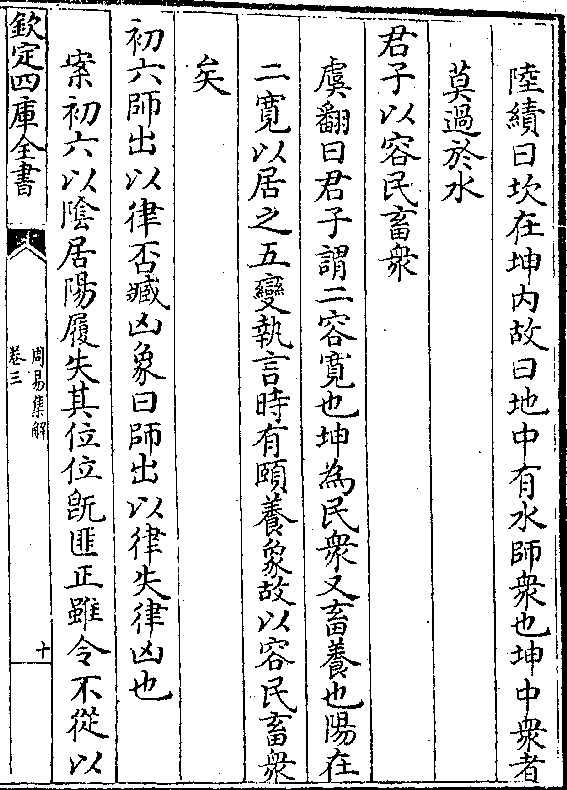 陸績曰坎在坤内故曰地中有水師衆也坤中衆者
莫過於水
君子以容民畜衆
虞翻曰君子謂二容寛也坤為民衆又畜養也陽在
二寛以居之五變執言時有頤養象故以容民畜衆
矣
初六師出以律否臧凶象曰師出以律失律凶也
案初六以隂居陽履失其位位旣匪正雖令不從以
欽定四庫全書
周易集解
卷三
十